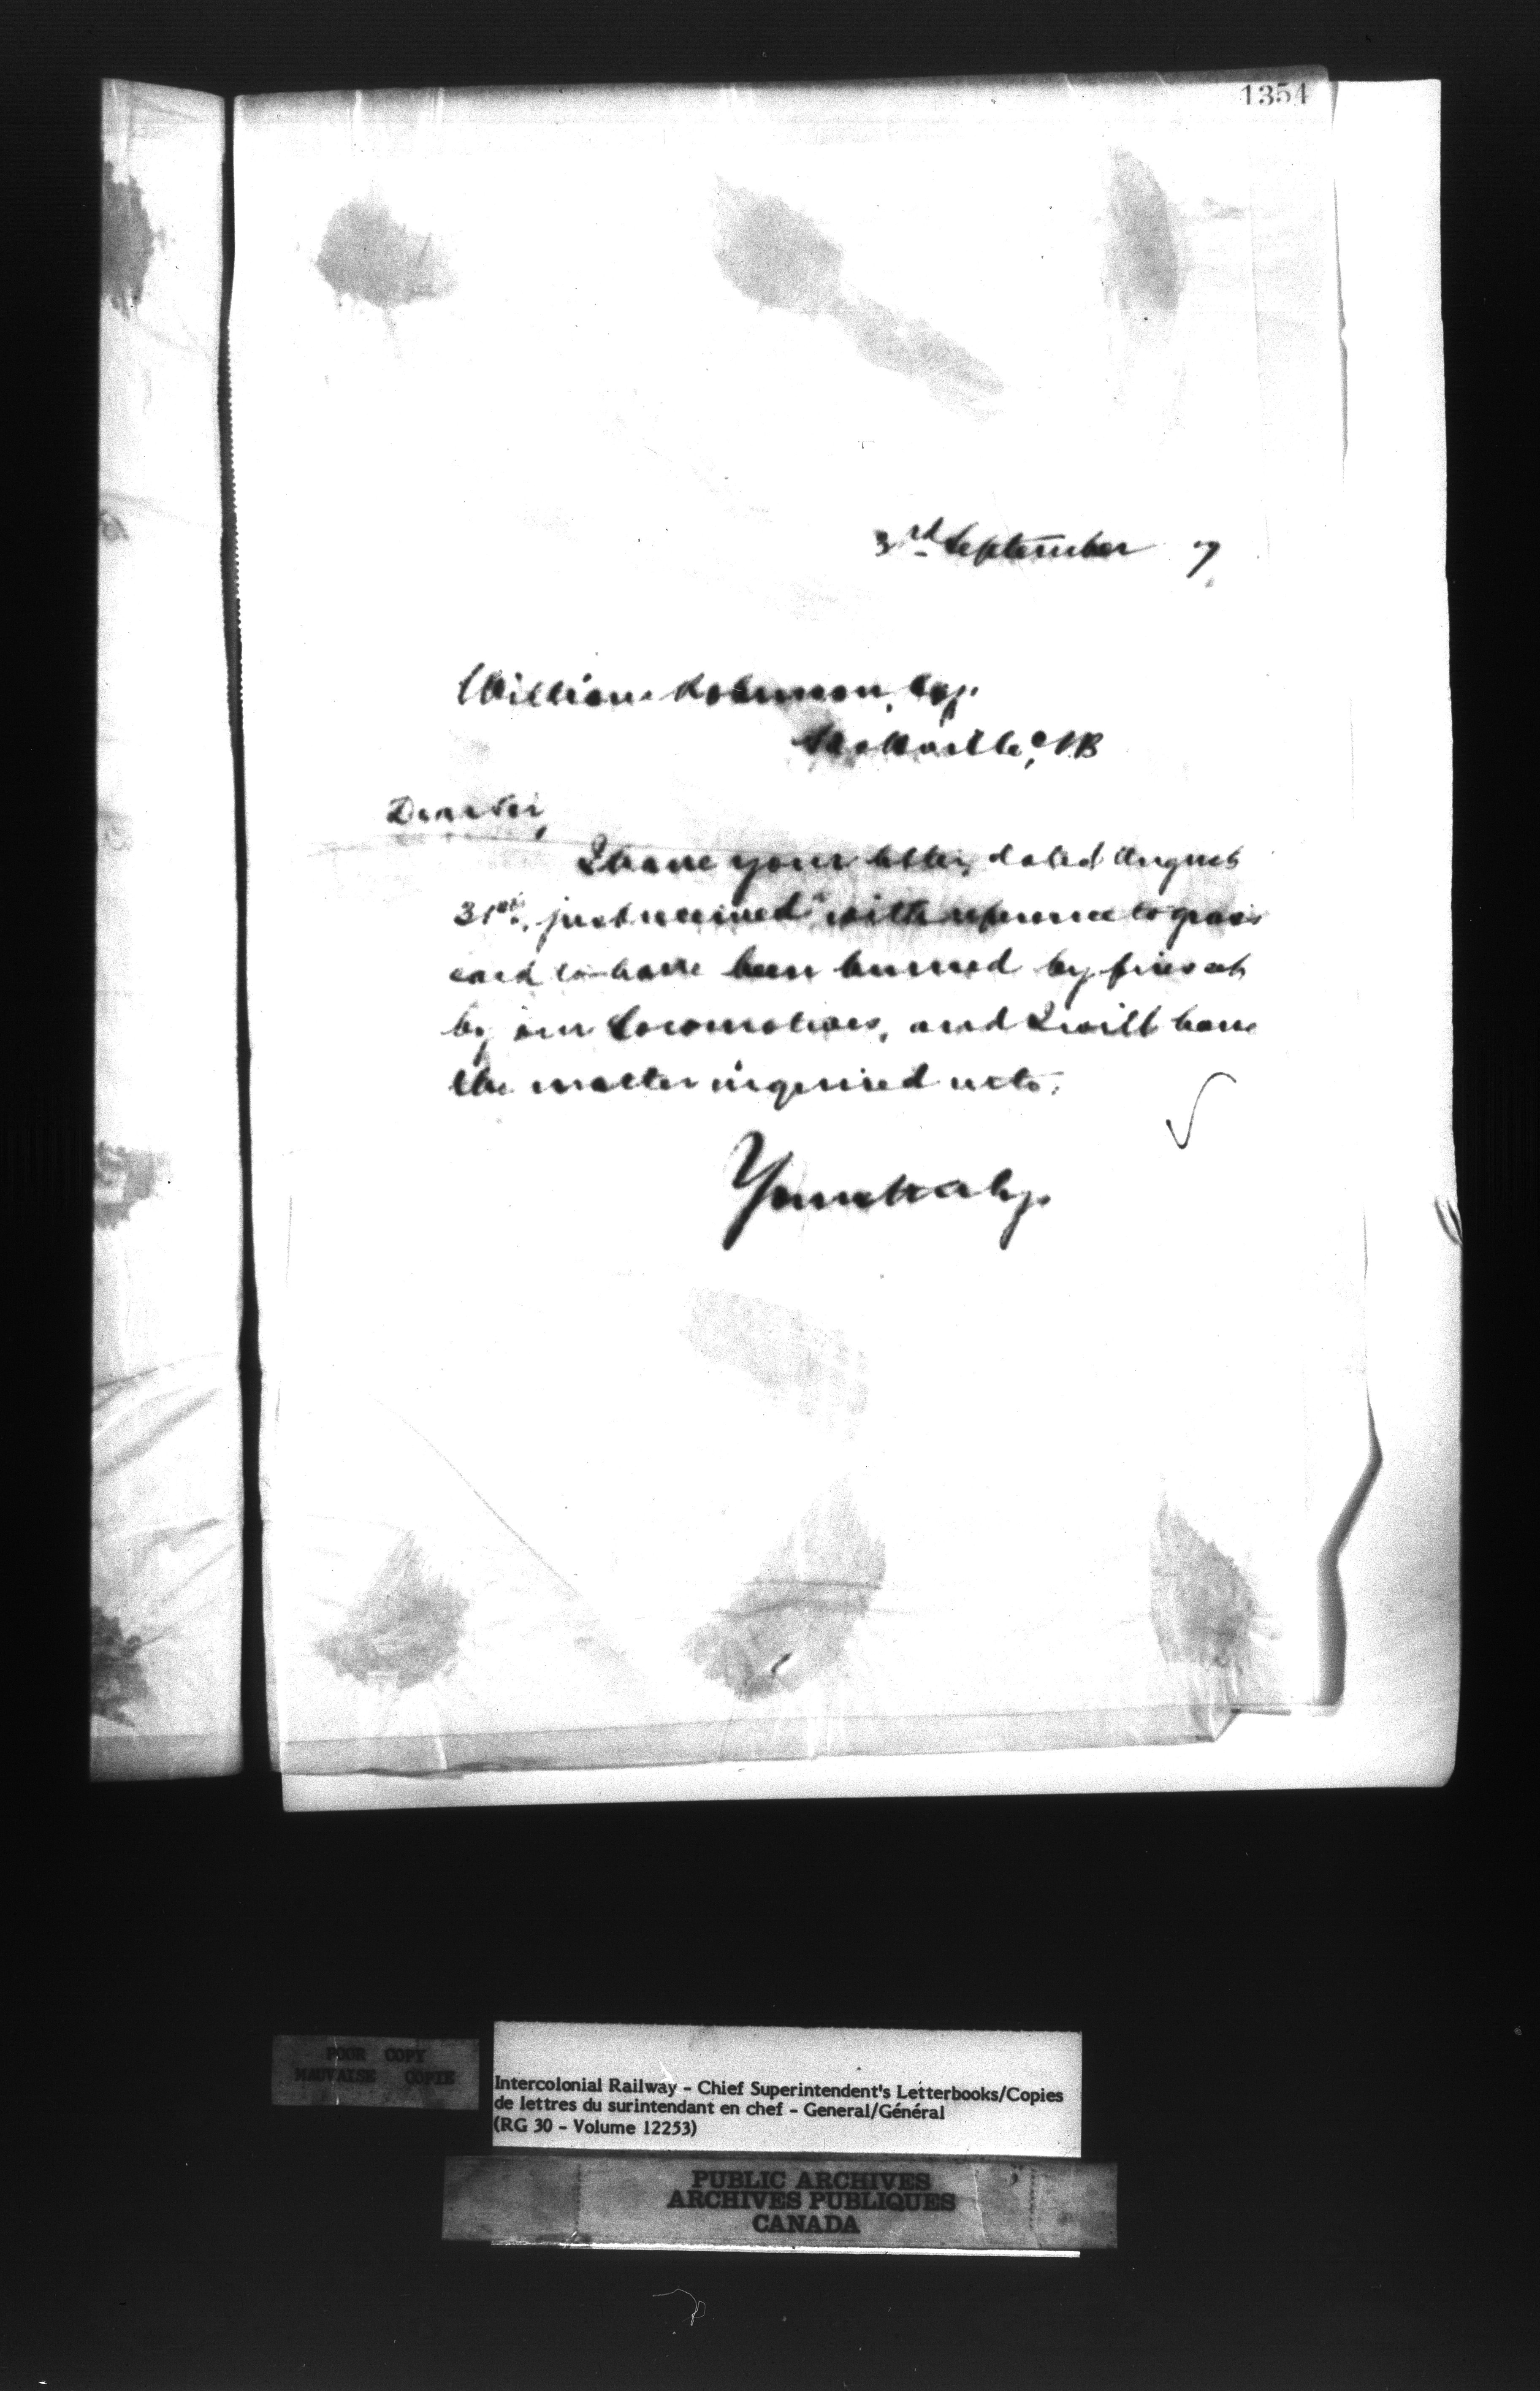 1354
3rd September 7
William Robinson, Esq.
N.B
Dear Sir,
I have your letter, dated August
31st, just received with reference to grass
said to have been burned by fires set
by our Locomotives, and I will have
the matter inquired into.
Yours truly.
POOR COPY
MAUVAISE COPIE
Intercolonial Railway - Chief Superintendent's Letterbooks/Copies
de lettres du surintendant en chef - General/Général
(RG 30 - Volume 12253)
PUBLIC ARCHIVES
ARCHIVES PUBLIQUES
CANADA